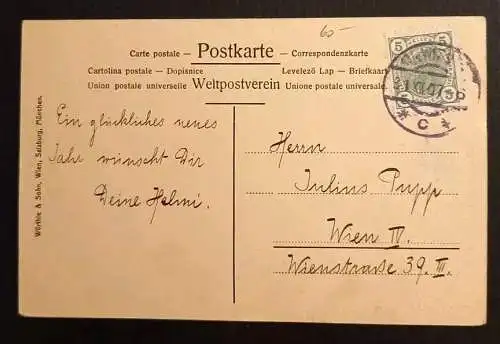 60-
Carte postale — Postkarte — Correspondenzkarte
Cartolina postale — Dopisnice Levelező Lap — Briefkaart
Union postale universelle Weltpostverein Unione postale universale
5 5
Ein glückliches neues
Jahr wünscht Dir
Deine Helmi.
Herrn
Julius Pupp
Wien IV.
Wienstraße 39. III.
Würthle & Sohn, Wien, Salzburg, München.
* C *